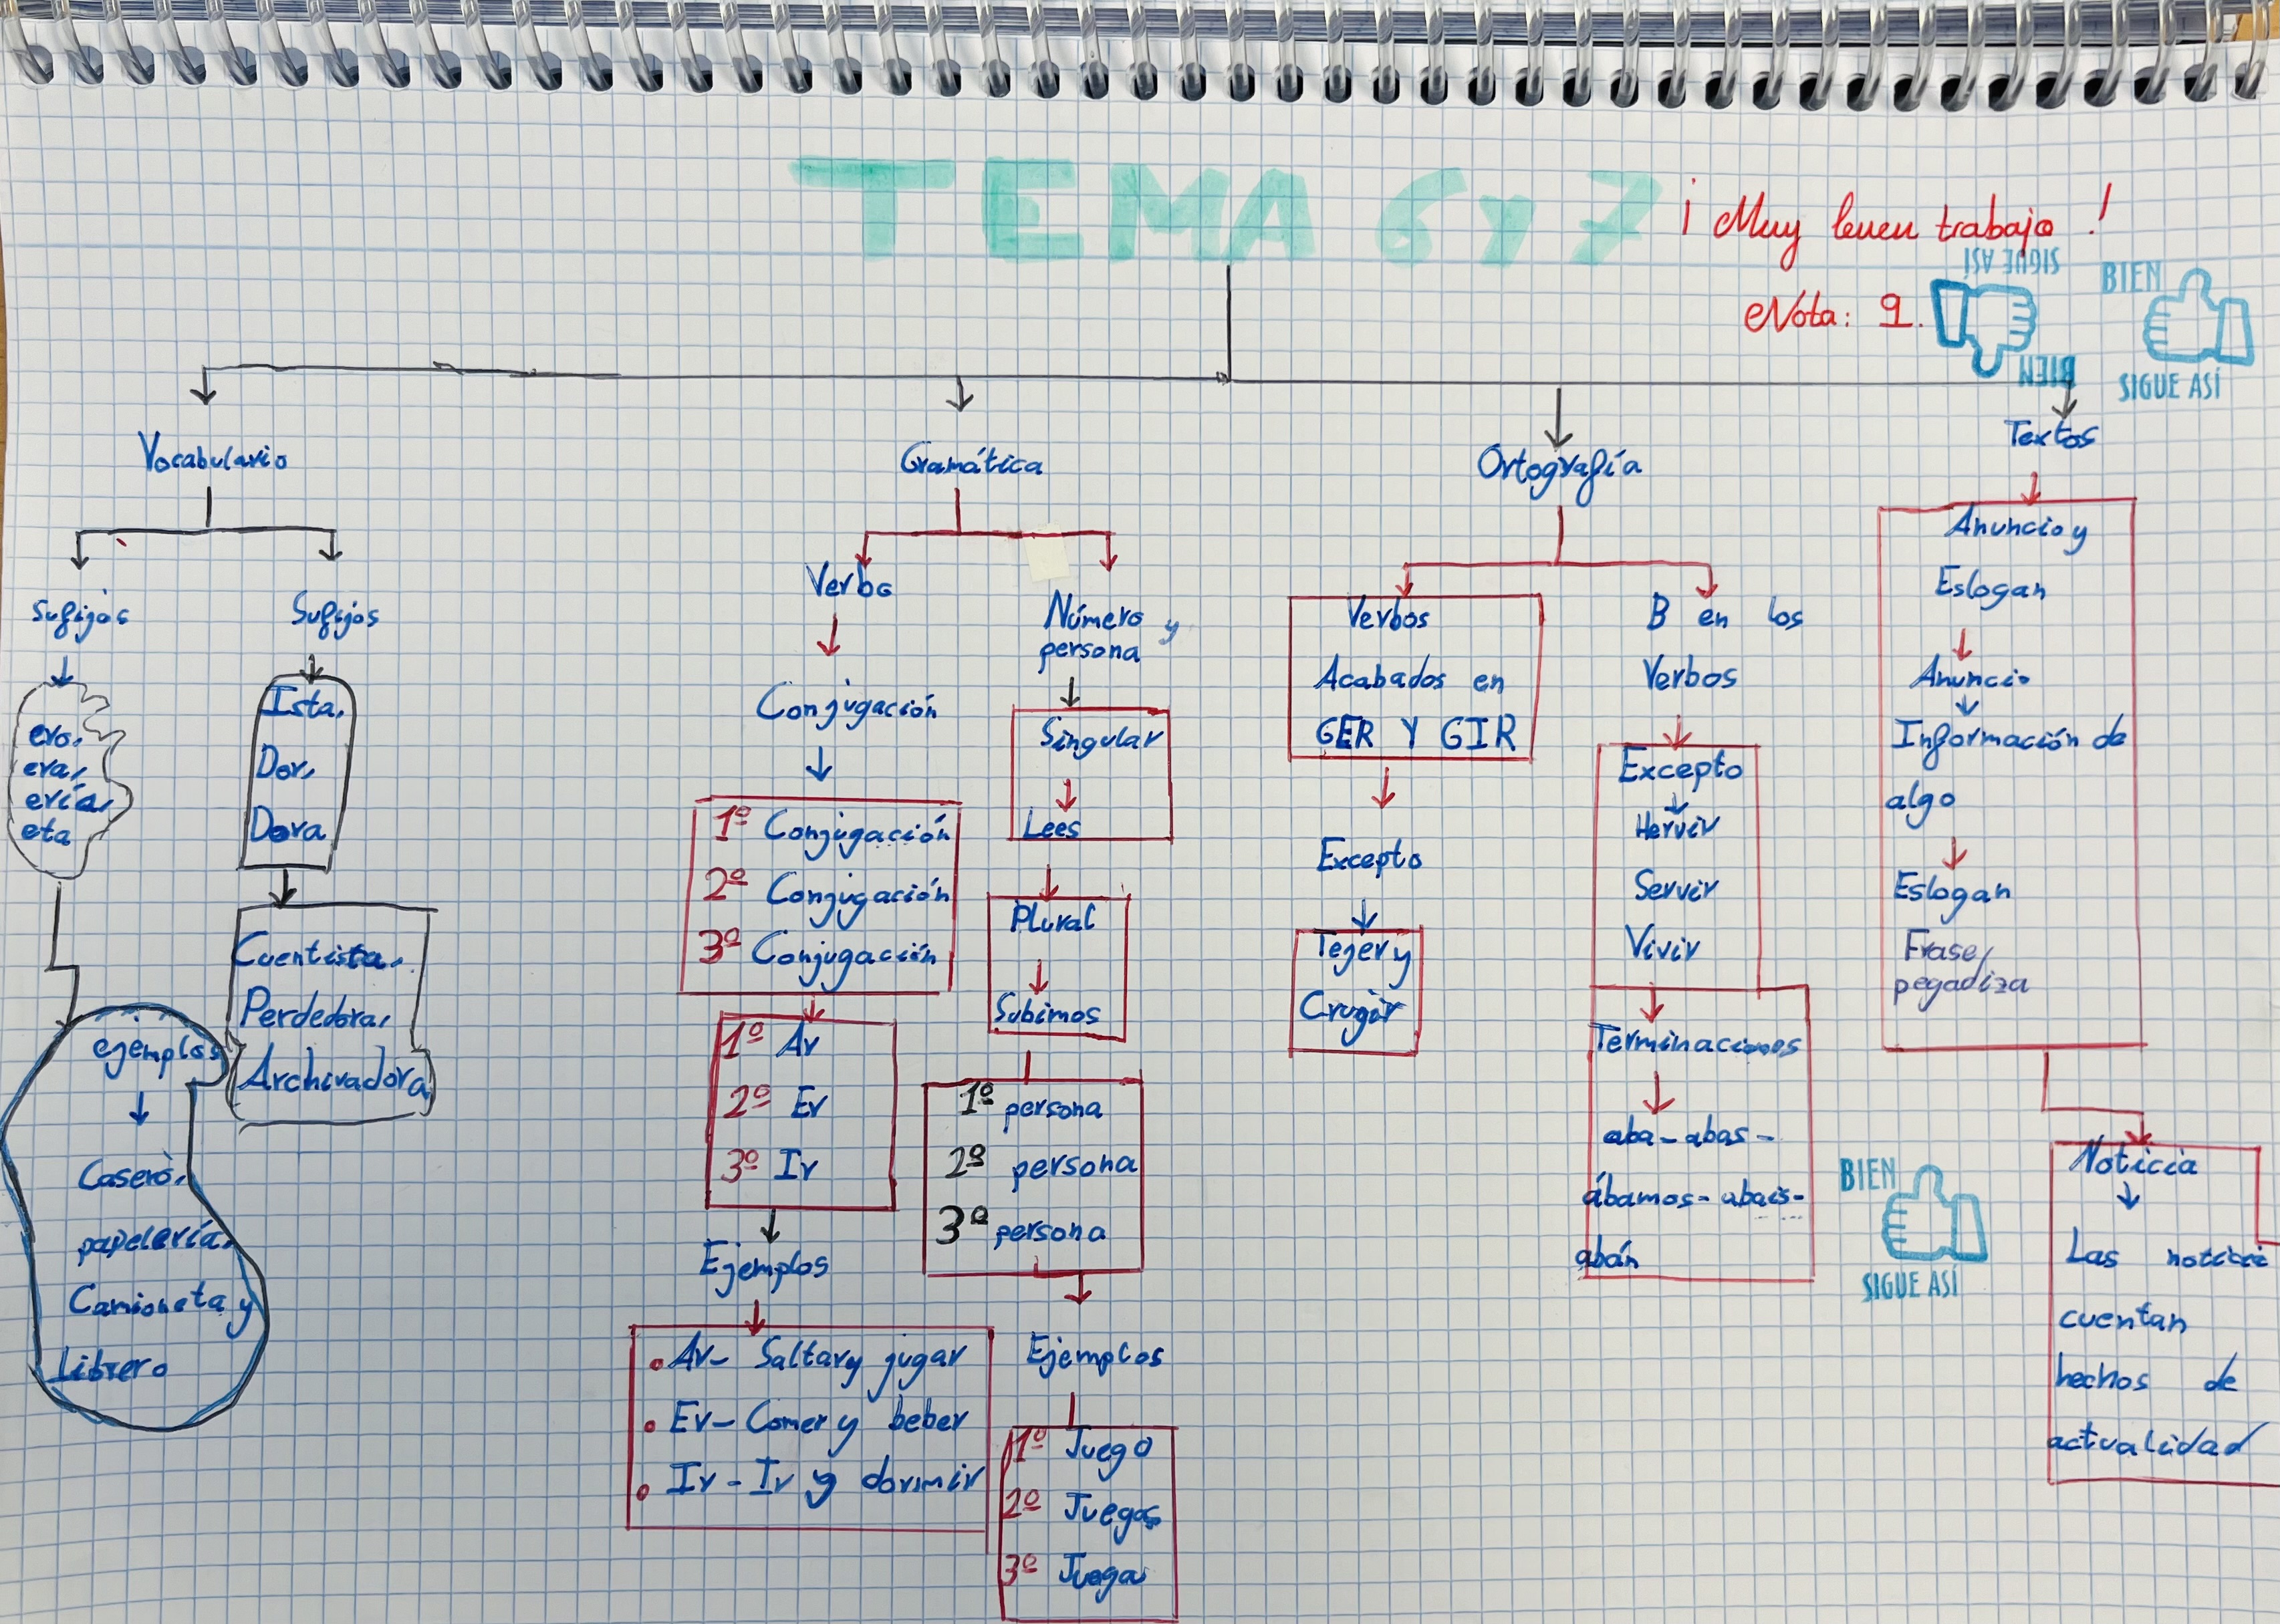 TEMA 6 Y 7
¡ Muy buen trabajo !
Nota: 9.
SIGUE ASÍ
BIEN
BIEN
SIGUE ASÍ
Vocabulario
Sufijos
ero,
era,
ería,
eta
ejemplos
Casero,
papelería,
Camioneta y
Librero
Sufijos
Ista,
Dor,
Dora
Cuentista,
Perdedora,
Archivadora
Gramática
Verbo
Conjugación
1º Conjugación
2º Conjugación
3º Conjugación
1º Ar
2º Er
3º Ir
Ejemplos
• Ar- Saltar y jugar
• Er- Comer y beber
• Ir - Ir y dormir
Número y
persona
Singular
Lees
Plural
Subimos
1º persona
2º persona
3º persona
Ejemplos
1º Juego
2º Juegas
3º Juega
Ortografía
Verbos
Acabados en
GER Y GIR
Excepto
Tejer y
Crugir
B en los
Verbos
Excepto
Hervir
Servir
Vivir
Terminaciones
aba - abas -
ábamos - abais -
abán
BIEN
SIGUE ASÍ
Textos
Anuncio y
Eslogan
Anuncio
Información de
algo
Eslogan
Frase,
pegadiza
Noticia
Las
cuentan
hechos de
actualidad